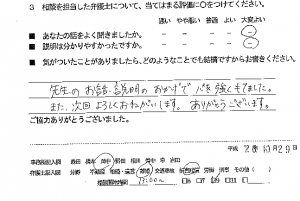 3 相談を担当した弁護士について、当てはまる評価に○をつけてください。
悪い やや悪い 普通 よい 大変よい
■ あなたの話をよく聞きましたか。
■ 説明は分かりやすかったですか。
■ 気がついたことがありましたら、どのようなことでも結構ですからお書きください。
先生のお話・説明のおかげで心を強くもてました。
また、次回よろしくおねがいします。ありがとうございます。
ご協力ありがとうございました。
平成 28年10月29日
事務局記入欄
弁護士記入欄 分野 不動産 相続・遺言 離婚 交通事故 労働 刑事 その他( )